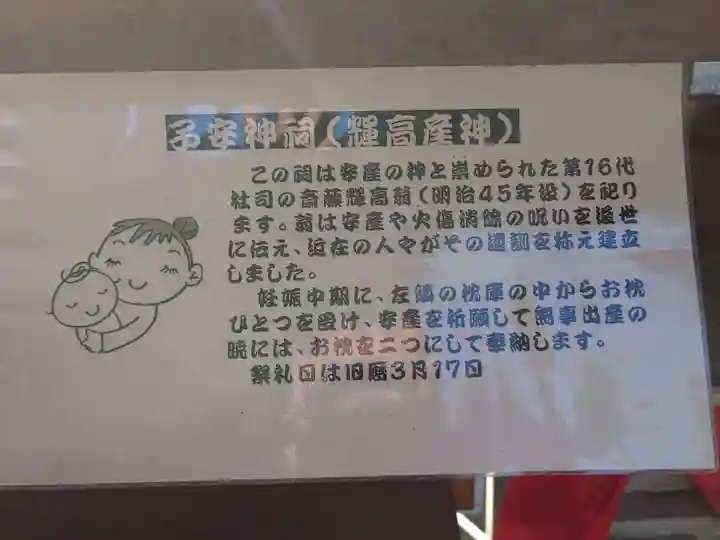 子安神祠(輝高産神)
この祠は安産の神と崇められた第16代
社司の斎藤輝高翁(明治45年没)を祀り
ます。翁は安産や火傷消除の呪いを後世
に伝え、近在の人々がその遺訓を称え建立
しました。
妊娠中期に、左鴨の枕庫の中からお枕
ひとつを受け、安産を祈願して無事出産の
暁には、お枕を二つにして奉納します。
祭礼日は旧暦3月17日